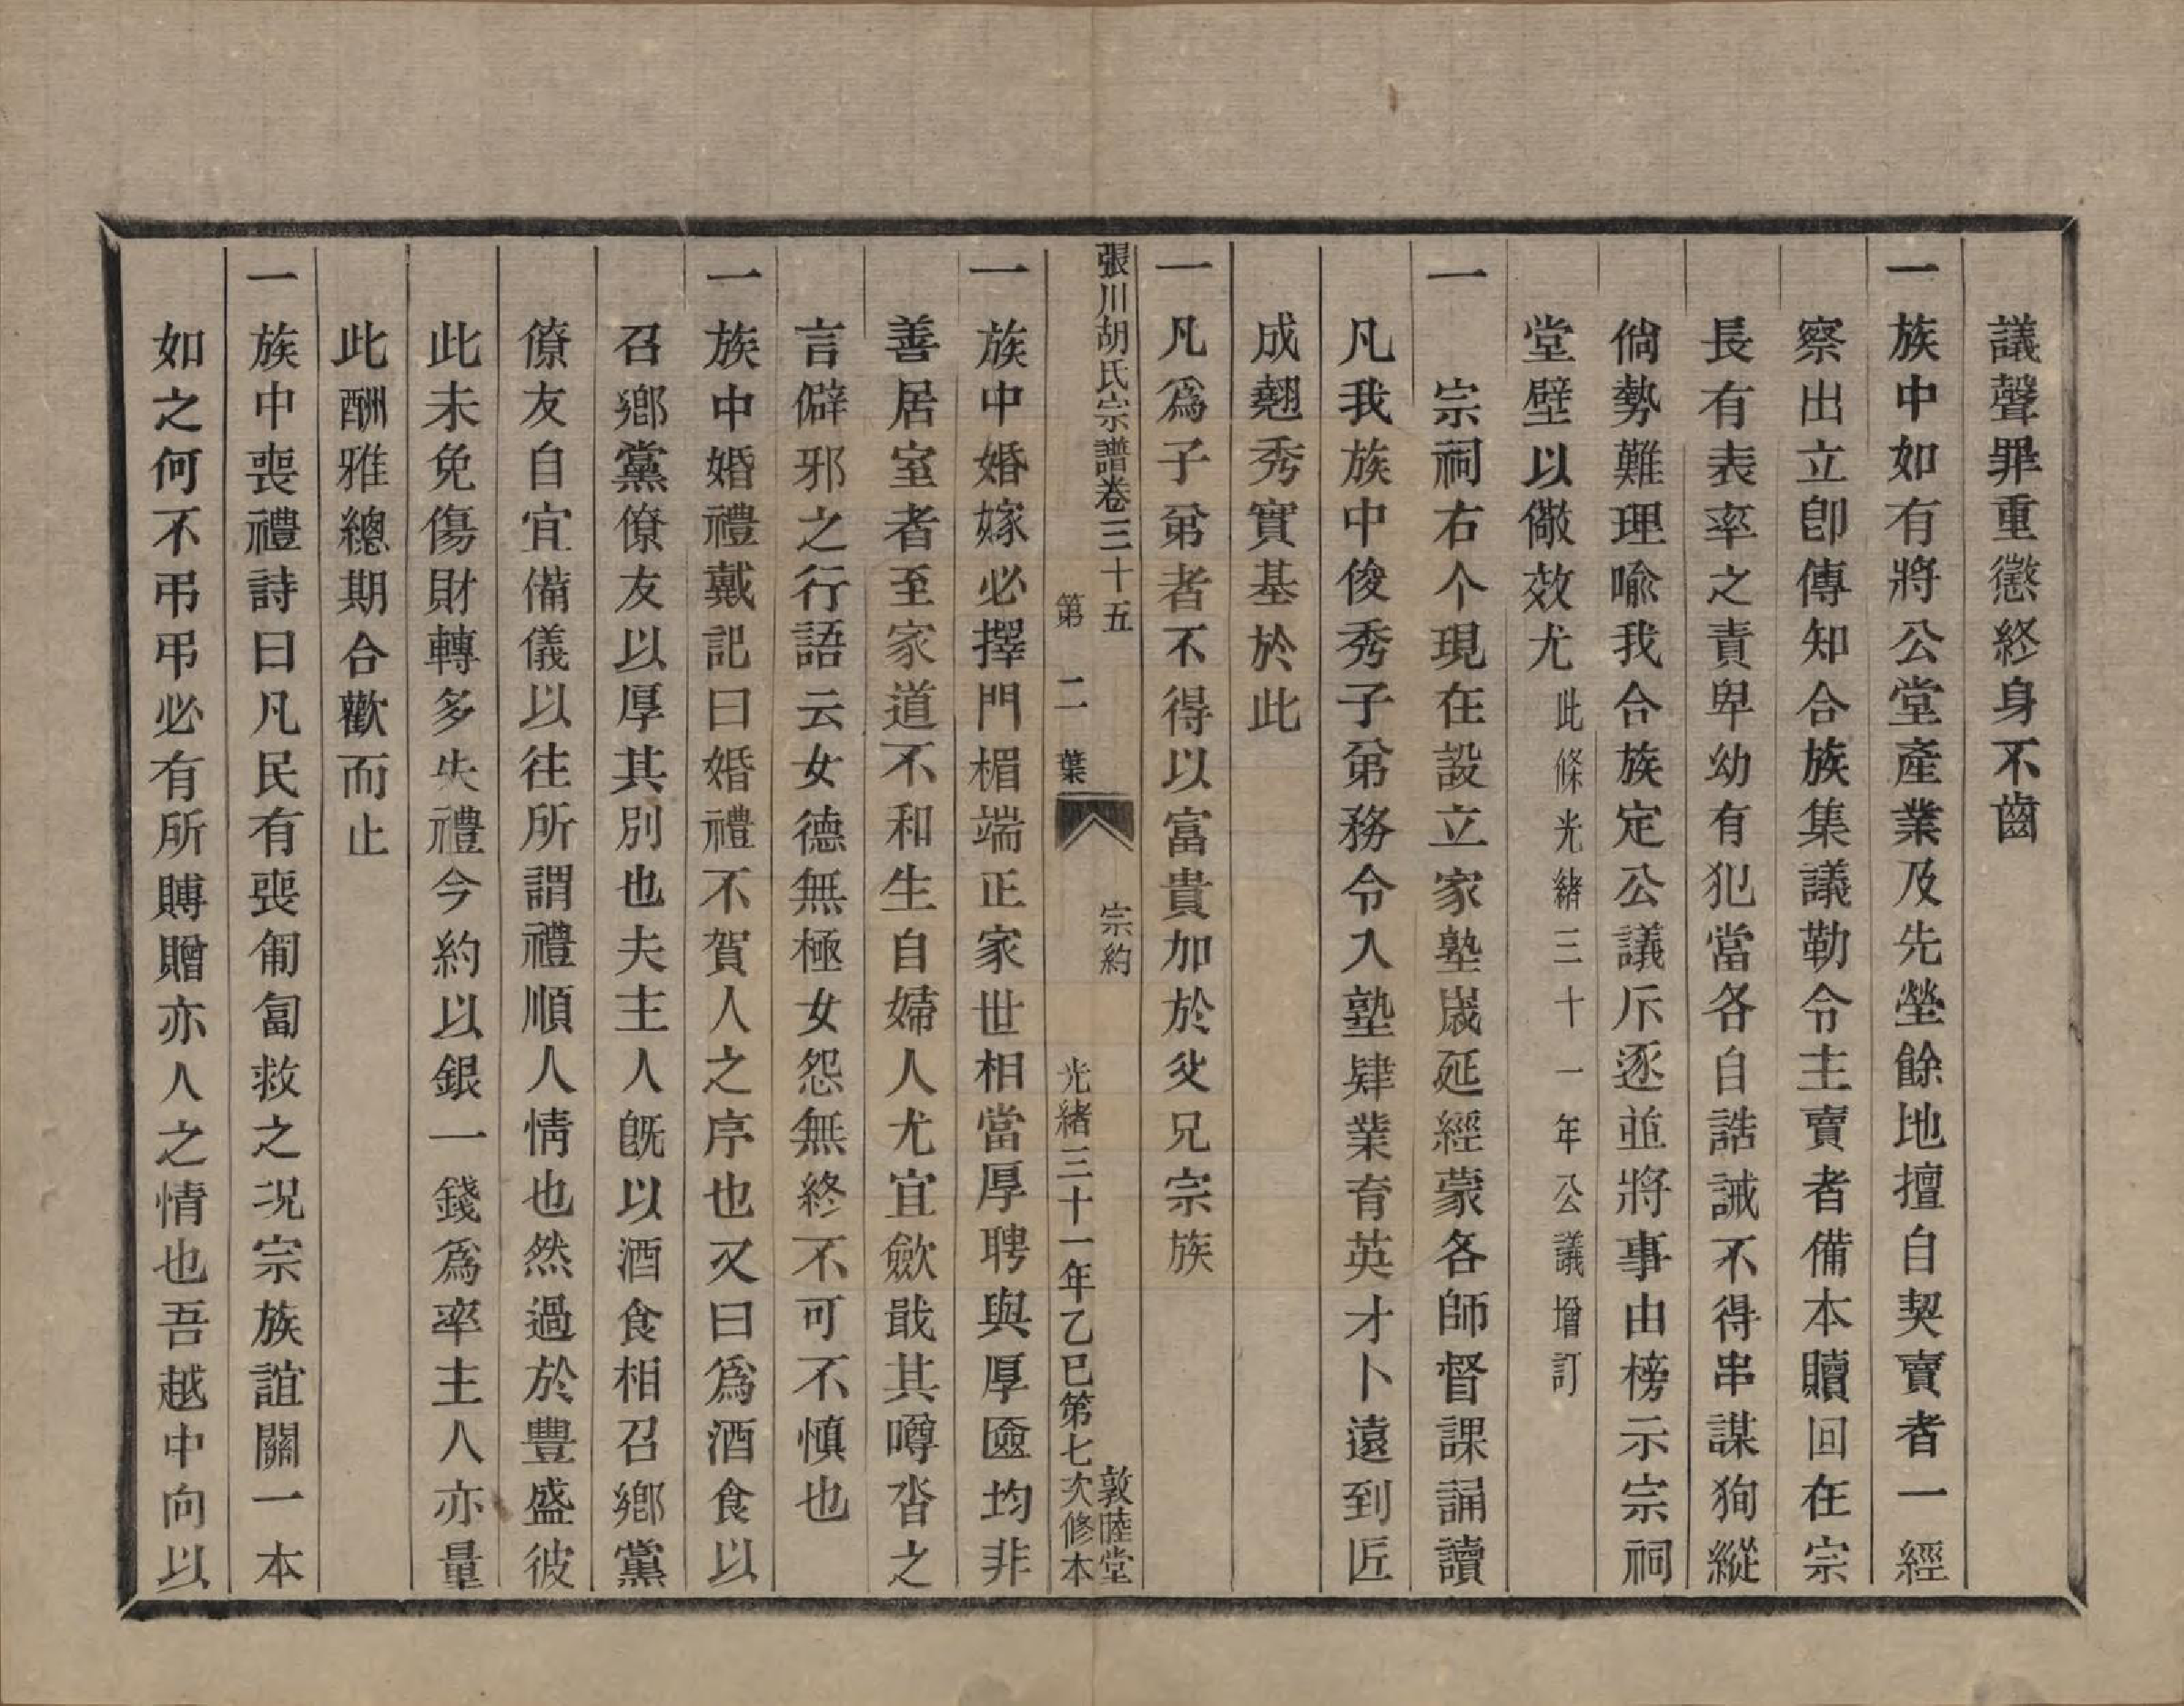 議聲罪重懲終身不齒
一族中如有將公堂產業及先塋餘地擅自契賣者一經
察出立卽傳知合族集議勒令主賣者備本贖回在宗
長有表率之責卑幼有犯當各自誥誡不得串謀狥縱
倘勢難理喩我合族定公議斥逐並將事由榜示宗祠
堂壁以儆效尤此條光緒三十一年公議增訂
一 宗祠右个現在設立家塾歲延經蒙各師督課誦讀
凡我族中俊秀子弟務令入塾肄業育英才卜遠到匠
成翹秀實基於此
一凡爲子弟者不得以富貴加於父兄宗族
張川胡氏宗譜卷三十五 宗約 敦睦堂
第二葉 光緒三十一年乙巳第七次修本
一族中婚嫁必擇門楣端正家世相當厚聘與厚匳均非
善居室者至家道不和生自婦人尤宜歛戢其噂沓之
言僻邪之行語云女德無極女怨無終不可不慎也
一族中婚禮戴記曰婚禮不賀人之序也又曰爲酒食以
召鄉黨僚友以厚其別也夫主人旣以酒食相召鄉黨
僚友自宜備儀以往所謂禮順人情也然過於豐盛彼
此未免傷財轉多失禮今約以銀一錢爲率主人亦量
此酬雅總期合歡而止
一族中喪禮詩曰凡民有喪匍匐救之况宗族誼關一本
如之何不弔弔必有所賻贈亦人之情也吾越中向以